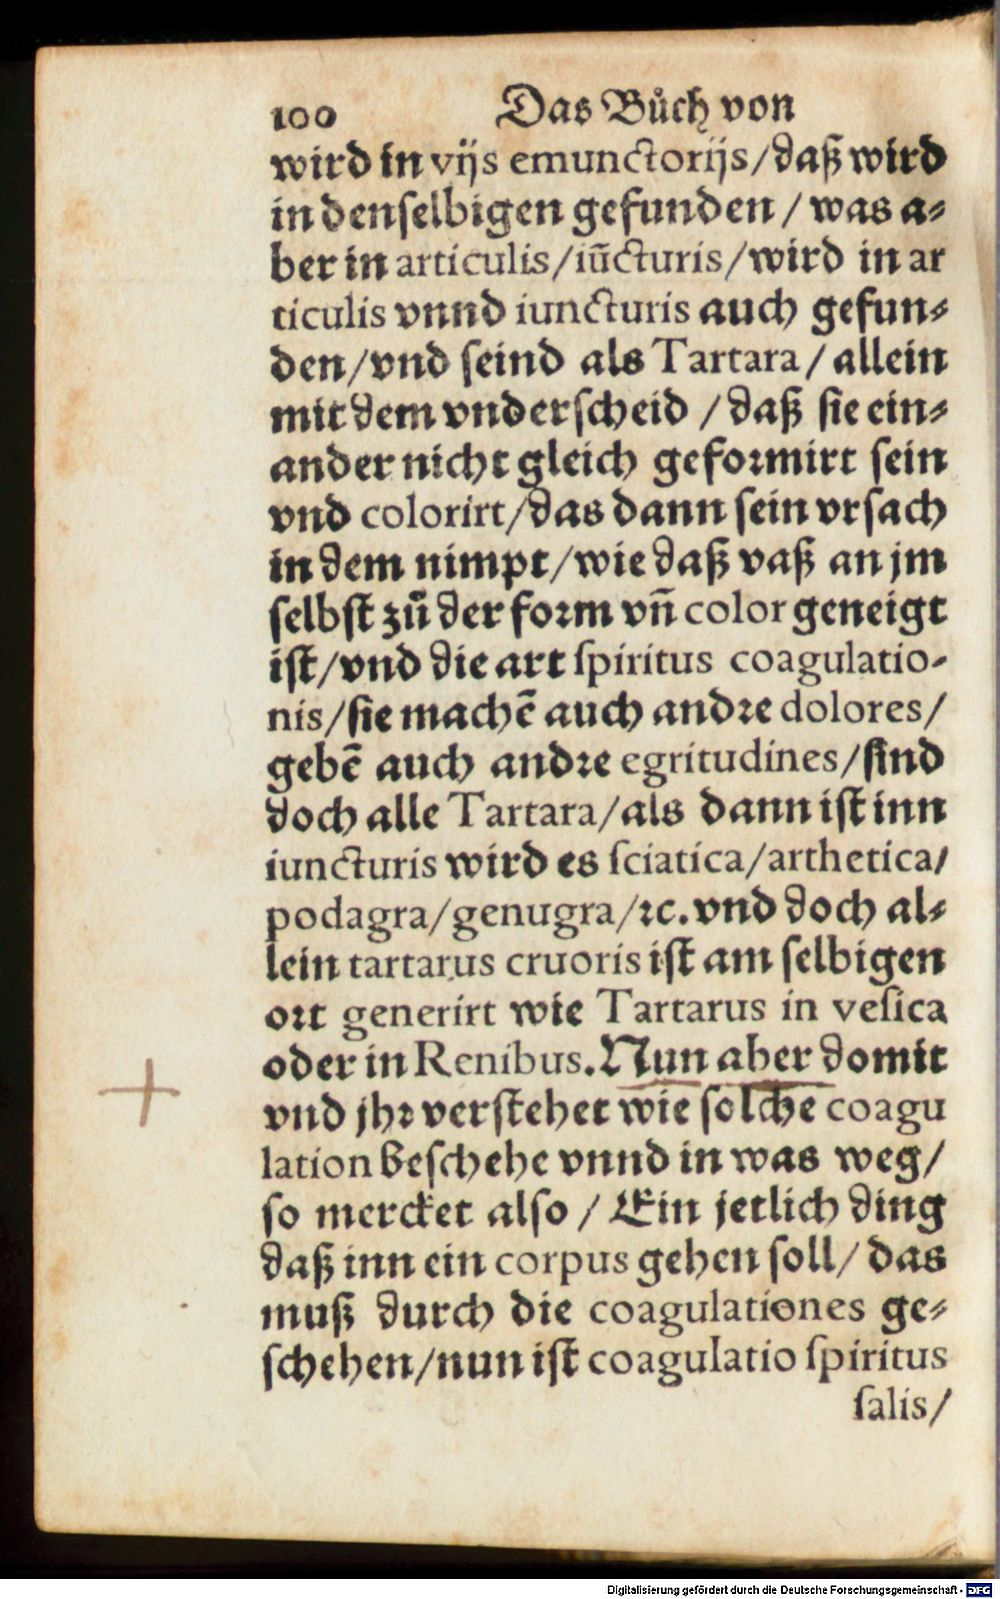 100 Das Bůch von
wird in vijs emunctorijs/daß wird
in denselbigen gefunden / was a⸗
ber in articulis/iūcturis/wird in ar
ticulis vnnd iuncturis auch gefun⸗
den/vnd seind als Tartara/ allein
mit dem vnderscheid / daß sie ein⸗
ander nicht gleich geformirt sein
vnd colorirt/das dann sein vrsach
in dem nimpt/wie daß vaß an jm
selbst zů der form vn̄ color geneigt
ist/vnd die art spiritus coagulatio-
nis/sie machē auch andre dolores/
gebē auch andre egritudines/sind
doch alle Tartara/als dann ist inn
iuncturis wird es sciatica/arthetica/
podagra/genugra/ꝛc. vnd doch al⸗
lein tartarus cruoris ist am selbigen
ort generirt wie Tartarus in vesica
oder in Renibus. Nun aber domit
vnd jhr verstehet wie solche coagu
lation beschehe vnnd in was weg/
so mercket also / Ein jetlich ding
daß inn ein corpus gehen soll/ das
muß durch die coagulationes ge⸗
schehen/nun ist coagulatio spiritus
salis/
Digitalisierung gefördert durch die Deutsche Forschungsgemeinschaft - DFG